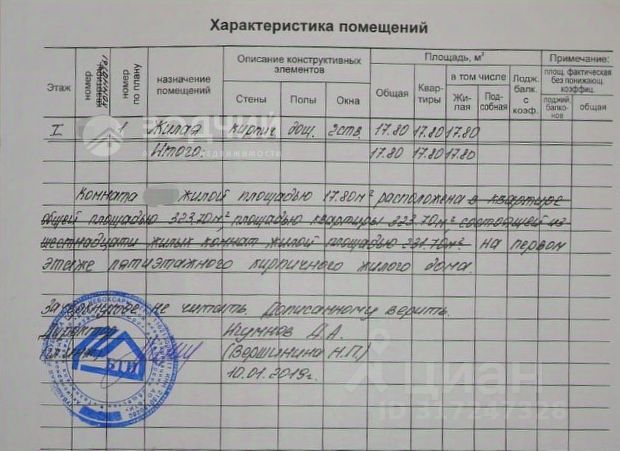 Характеристика помещений
Этаж
номер
номер по плану
назначение помещений
Описание конструктивных элементов
Стены
Полы
Окна
Площадь, м²
Общая
Квартиры
в том числе
Жилая
Подсобная
Лодж. балк. с коэф.
Примечание:
площ. фактическая без понижающ. коэффиц.
лоджий, балконов
общая
I 1 Жилая кирпич. дощ. 2ств. 17.80 17.80 17.80
Итого: 17.80 17.80 17.80
Комната жилой площадью 17.80м² расположена в квартире
общей площадью 323.70м², площадью квартиры 323.70м² состоящей из
шестнадцати жилых комнат жилой площадью 231.70м² на первом
этаже пятиэтажного кирпичного жилого дома.
Зачеркнутое не читать. Дописанному верить.
Директор Д.А.
(Вершинина Н.П)
10.01.2019г.
БТИ
ЗОДЧИЙ
недвижимости
Циан